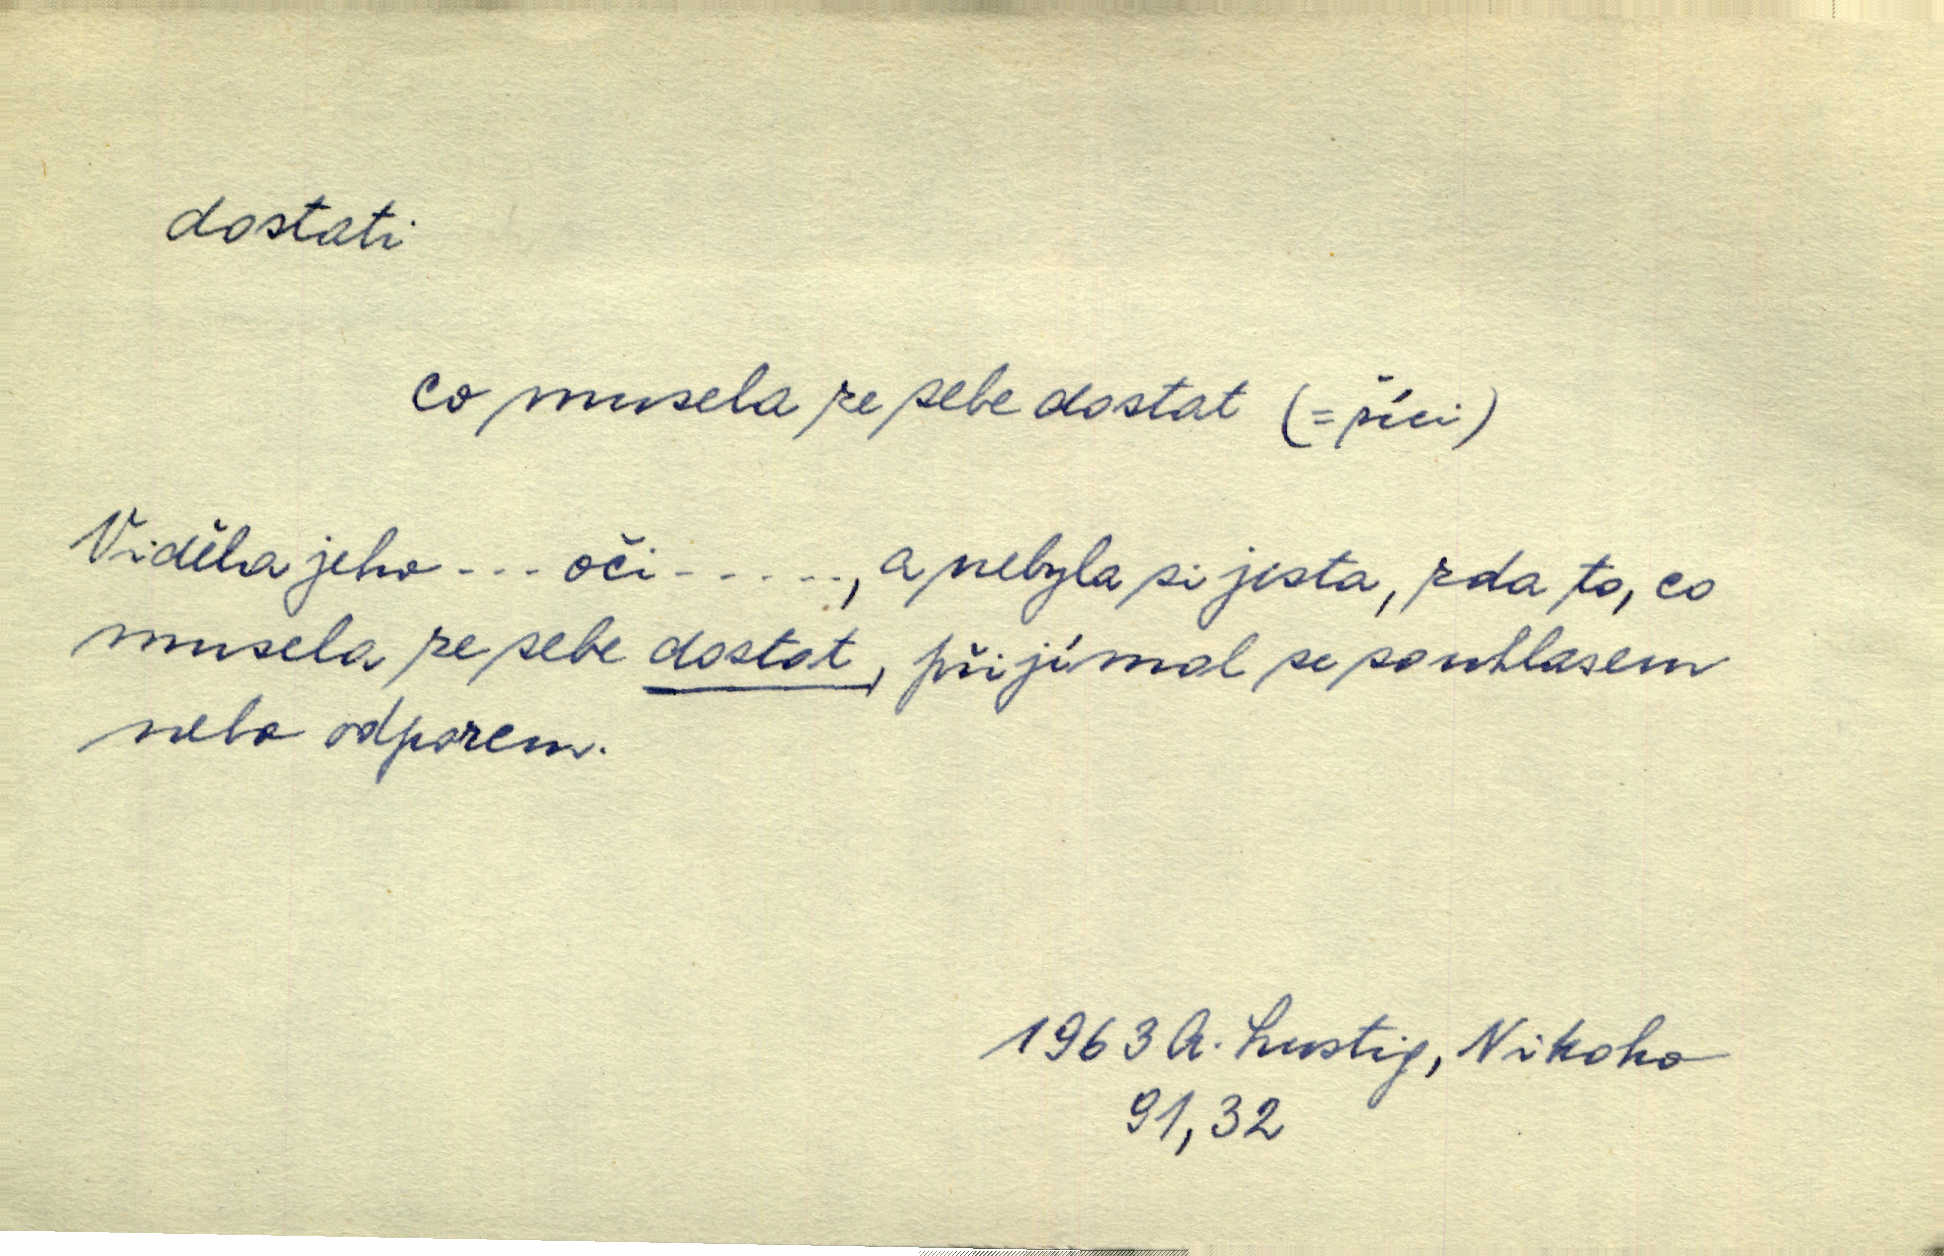 dostati
co musela ze sebe dostat (= říci)
Viděla jeho --- oči ------, a nebyla si jista, zda to, co
musela ze sebe dostat, přijímal se souhlasem
nebo odporem.
1963 A. Lustig, Nikoho
91,32